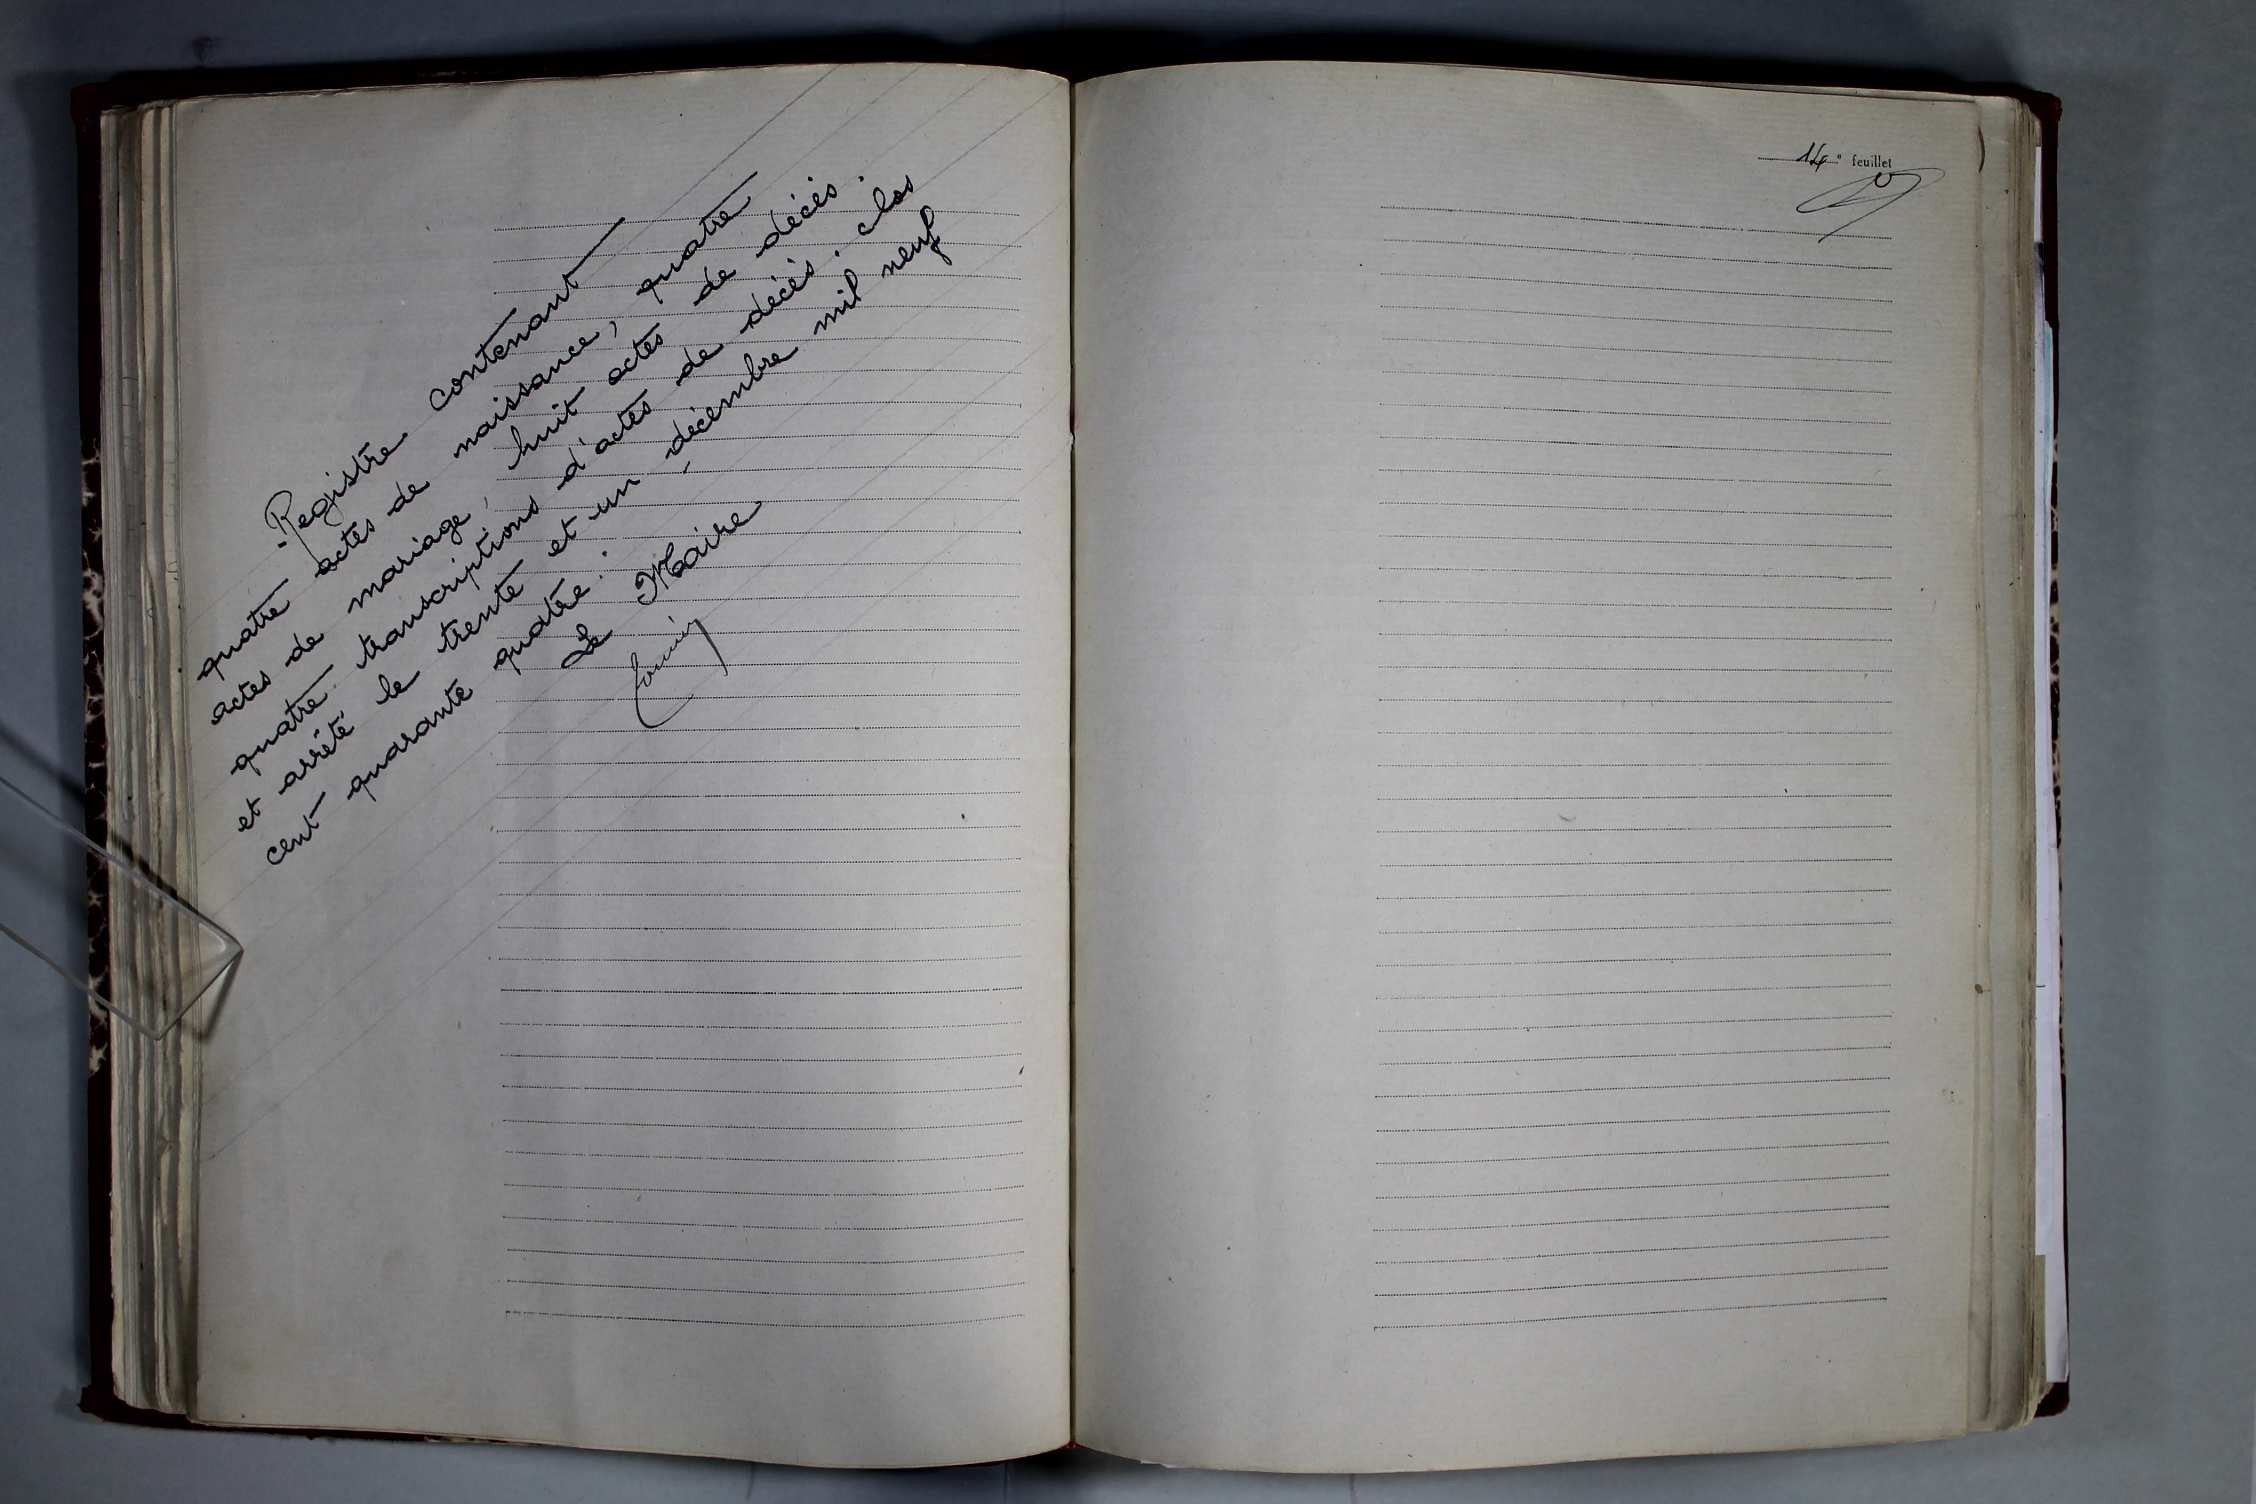 Registre contenant
quatre actes de naissance, quatre
actes de mariage, huit actes de décès.
quatre transcriptions d'actes de décès. clos
et arrêté le trente et un décembre mil neuf
cent quarante quatre.
Le Maire
14e feuillet